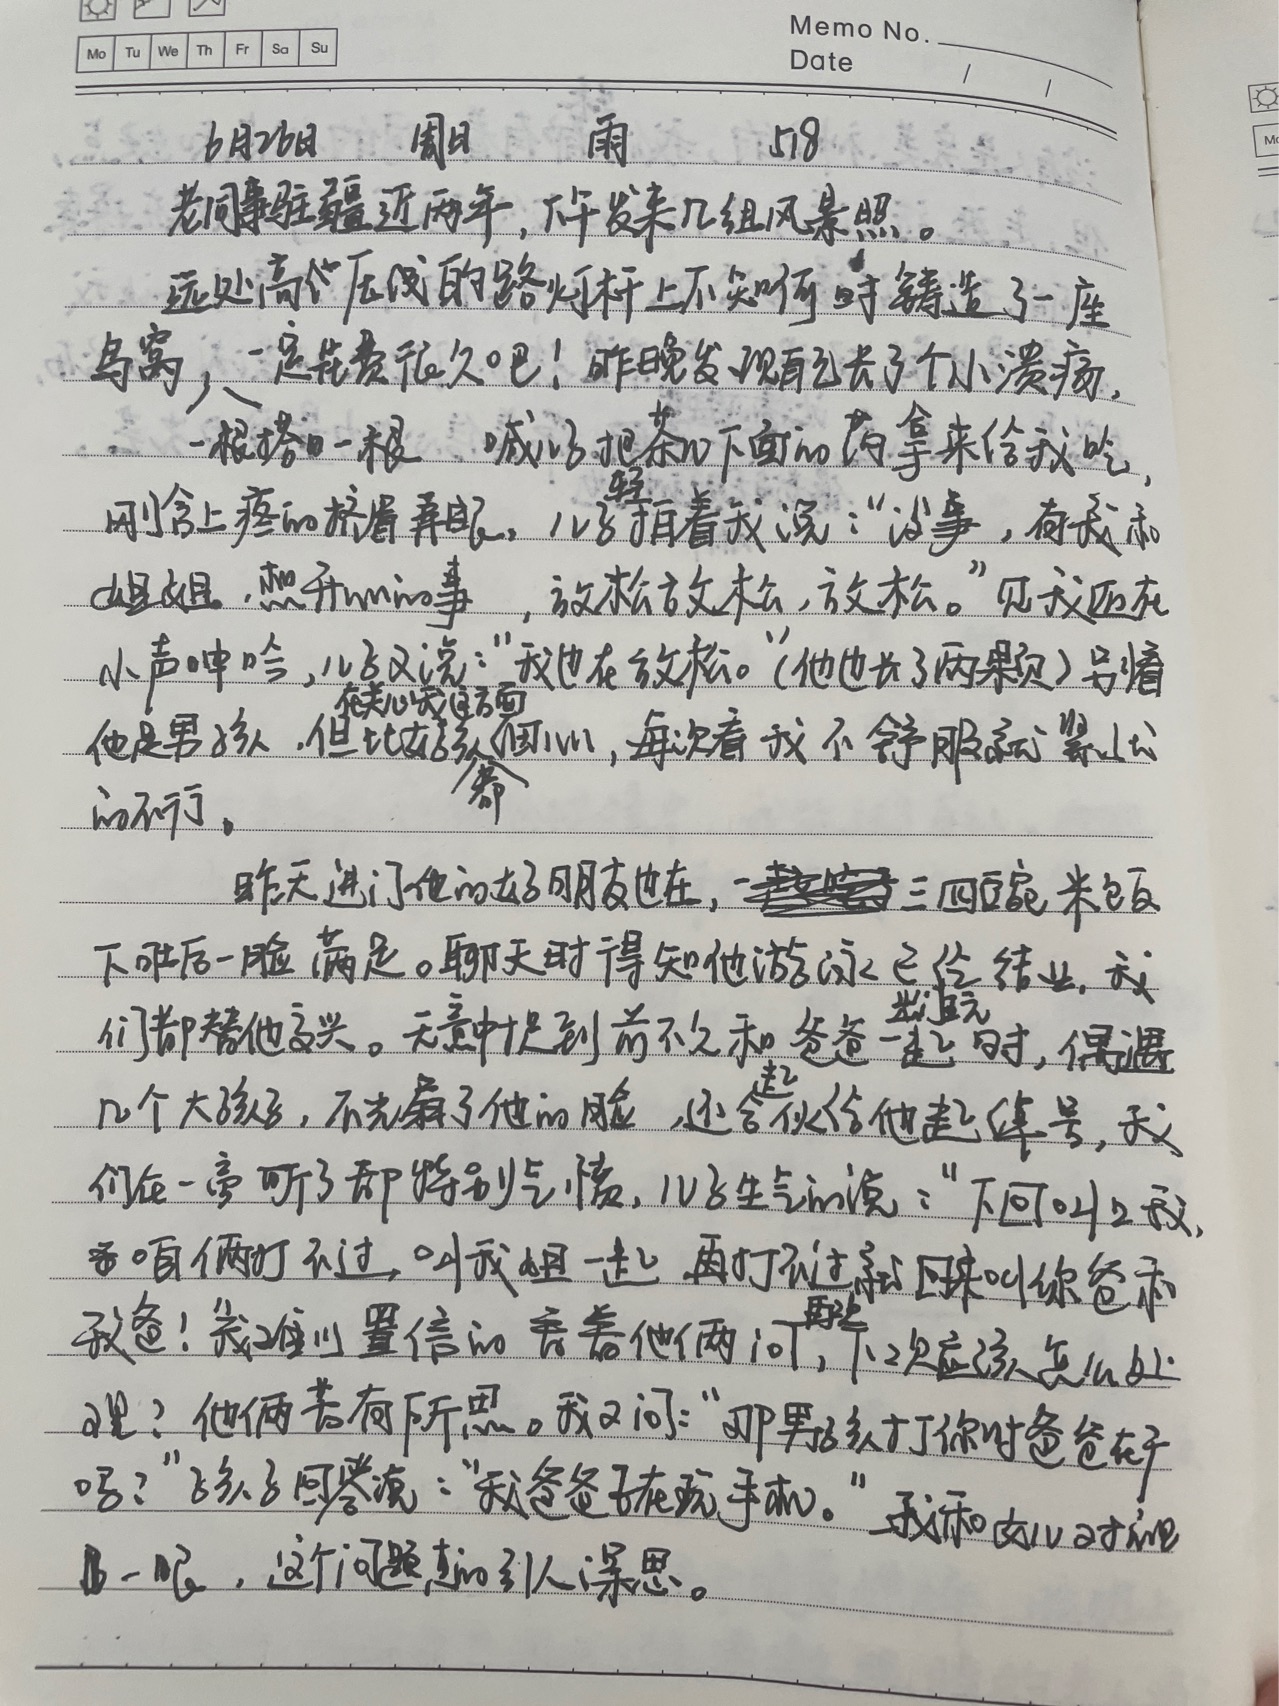 Mo Tu We Th Fr Sa Su
Memo No.
Date / /
6月26日 周日 雨 518
老同事驻疆近两年，下午发来几组风景照。
远处高压线的路灯杆上不知何时铸造了一座
鸟窝，一定花费很久吧！昨晚发现自己长了个小溃疡，
一根搭一根 喊儿子把茶几下面的药拿来给我吃，
轻
刚含上疼的挤眉弄眼，儿子拍着我说：“没事，有我和
姐姐，想开心的事，放松放松，放松。”见我还在
小声呻吟，儿子又说：“我也在放松。”（他也长了两颗）别看
在关心我这方面
他是男孩，但比女孩细心，每次看我不舒服就紧张
都
的不行。
昨天进门他的好朋友也在，三四碗米饭
下肚后一脸满足。聊天时得知他游泳已经结业，我
出门玩
们都替他高兴。无意中提到前不久和爸爸一起时，偶遇
起
几个大孩子，不光扇了他的脸，还合伙给他起绰号，我
们在一旁听了都特别气愤，儿子生气的说：“下回叫上我，
咱俩打不过，叫我姐一起 再打不过就回来叫你爸和
我爸！”我难以置信的看着他俩问，下次应该怎么处
理？他俩若有所思。我又问：“那男孩打你时爸爸在干
吗？”孩子回答说：“我爸爸在玩手机。”我和女儿对视
一眼，这个问题真的引人深思。